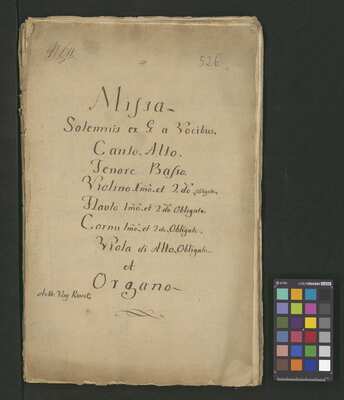 526.
Missa
Solemnis ex G a Vocibus.
Canto. Alto.
Tenore Basso.
Violino Imô. et 2do
Flauto Imô. et 2do Obligato.
Cornu Imô. et 2do. Obligato.
Viola di Alto. Obligato.
et
Organo